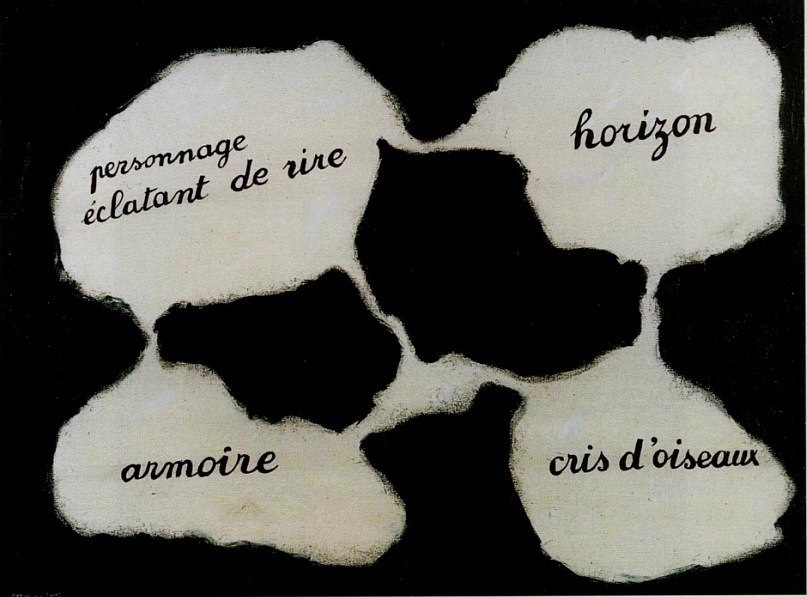 personnage
éclatant de rire
horizon
armoire
cris d'oiseaux